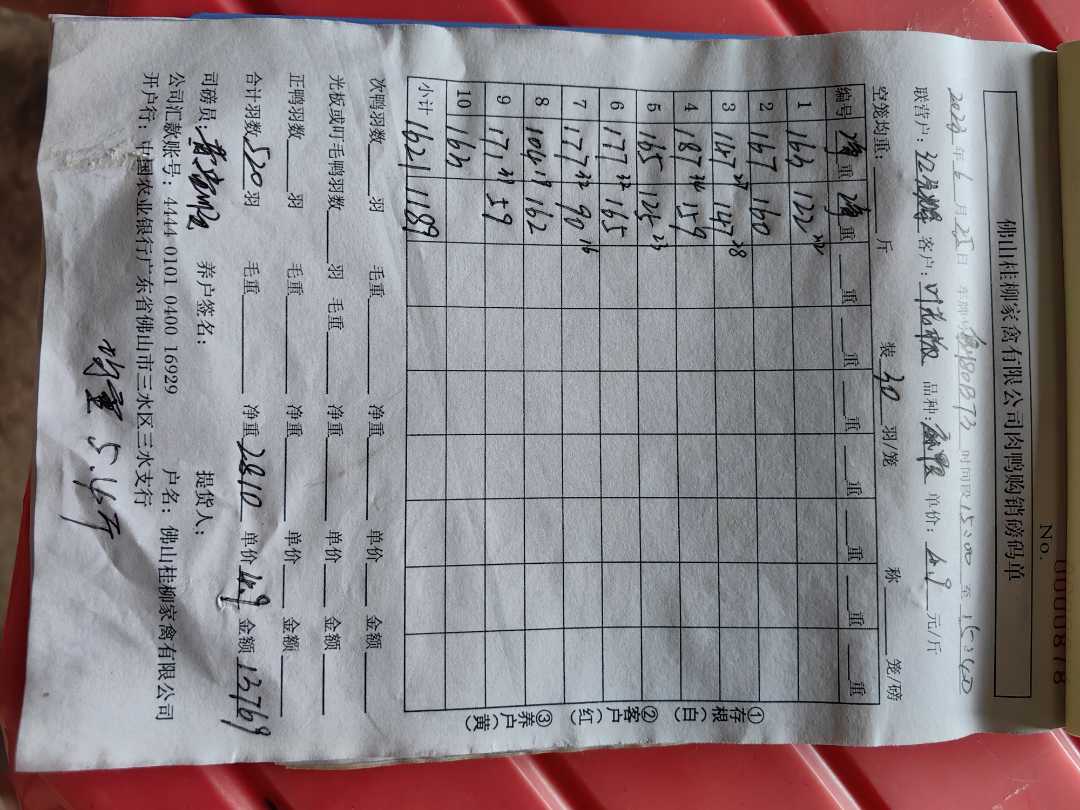 佛山桂柳家禽有限公司肉鸭购销磅码单
No. 0000878
2023年6月25日 车牌号 粤H80BT3 时间段15:00至15:40
联营户: 客户:叶 品种:麻鸭 单价:4.9元/斤
空笼均重: 斤 装30羽/笼 称 笼/磅
编号 净重 净重 重 重 重 重 重 重 重
1 163 122 22
2 167 160
3 147 27 147 28
4 187 34 159
5 165 125 23
6 177 32 165
7 177 32 90 16
8 104 19 162
9 171 31 59
10 163
小计 1621 1189
①存根(白) ②客户(红) ③养户(黄)
次鸭羽数 羽 毛重 净重 单价 金额
光板或叮毛鸭羽数 羽 毛重 净重 单价 金额
正鸭羽数 羽 毛重 净重 单价 金额
合计羽数520羽 毛重 净重2810 单价4.9 金额13769
司磅员: 养户签名: 提货人:
公司汇款账号:4444 0101 0400 16929 户名:佛山桂柳家禽有限公司
开户行:中国农业银行广东省佛山市三水区三水支行
均重 5.4斤